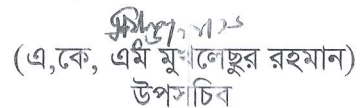 (এ,কে, এম মুখলেছুর রহমান)
উপসচিব